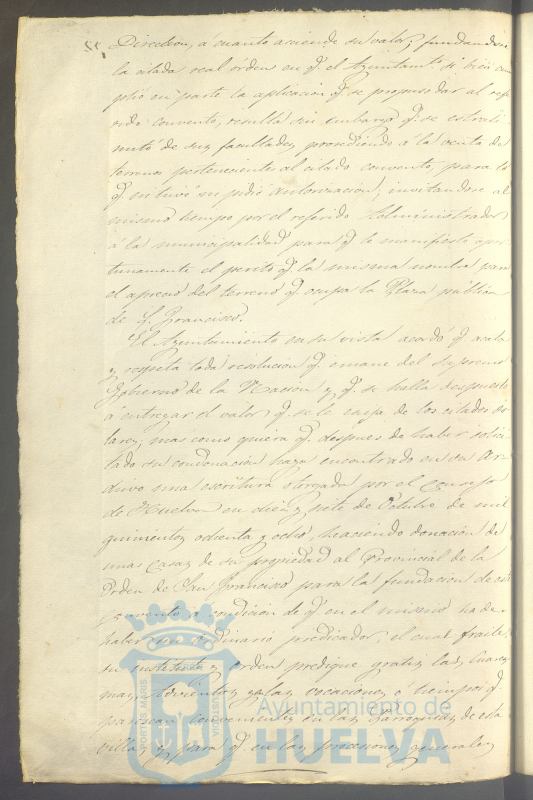 Direccion, á cuanto asciende su valor; fundandose
la citada real órden en q.e el Ayuntam.to si bien cum
plió en parte la aplicacion q.e se propuso dar al refe
rido convento, resulta sin embargo q.e se estrali
mitó de sus facultades, procediendo á la venta de
terrenos pertenecientes al citado convento, para lo
q.e ni tuvo ni pidió autorizacion; invitandose al
mismo tiempo por el referido Administrador
á la municipalidad para q.e le manifieste opor
tunamente el perito q.e la misma nombra para
el aprecio del terreno q.e ocupa la Plaza pública
de S. Francisco.
El Ayuntamiento en su vista acordó q.e acata
y respeta toda resolucion q.e emane del Supremo
Gobierno de la Nacion y q.e se halla dispuesto
á entregar el valor q.e se le exija de los citados so
lares; mas como quiera q.e despues de haber solici
tado su condonacion haya encontrado en su Ar
chivo una escritura otorgada por el Concejo
de Huelva en diez y siete de Octubre de mil
quinientos ochenta y ocho, haciendo donacion de
unas casas de su propiedad al Provincial de la
Orden de San Francisco para la fundacion de este
convento á condicion de q.e en el mismo ha de
haber un ordinario predicador, el cual fraile,
su instituto y orden predique gratis las Cuares
mas, Advientos y las vocaciones ó tiempos q.e
parescan convenientes en las Parroquias de esta
villa y para q.e en las procesiones generales
PORTUS MARIS
ET TERRÆ CUSTODIA
Ayuntamiento de
HUELVA